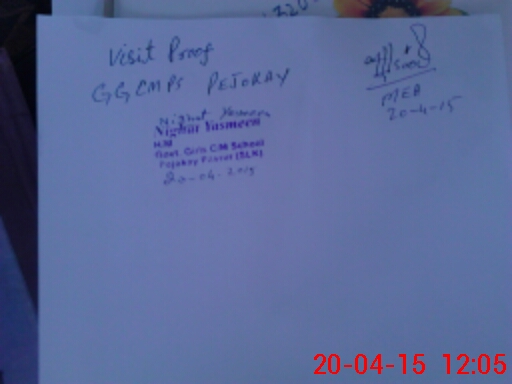 Visit Proof
GGCMPS PEJOKAY
Nighat Yasmeen
Nighat Yasmeen
H.M
Govt. Girls C.M School
Pejokay Pasrur (SLK)
20-04-2015
MEA
20-4-15
20-04-15 12:05